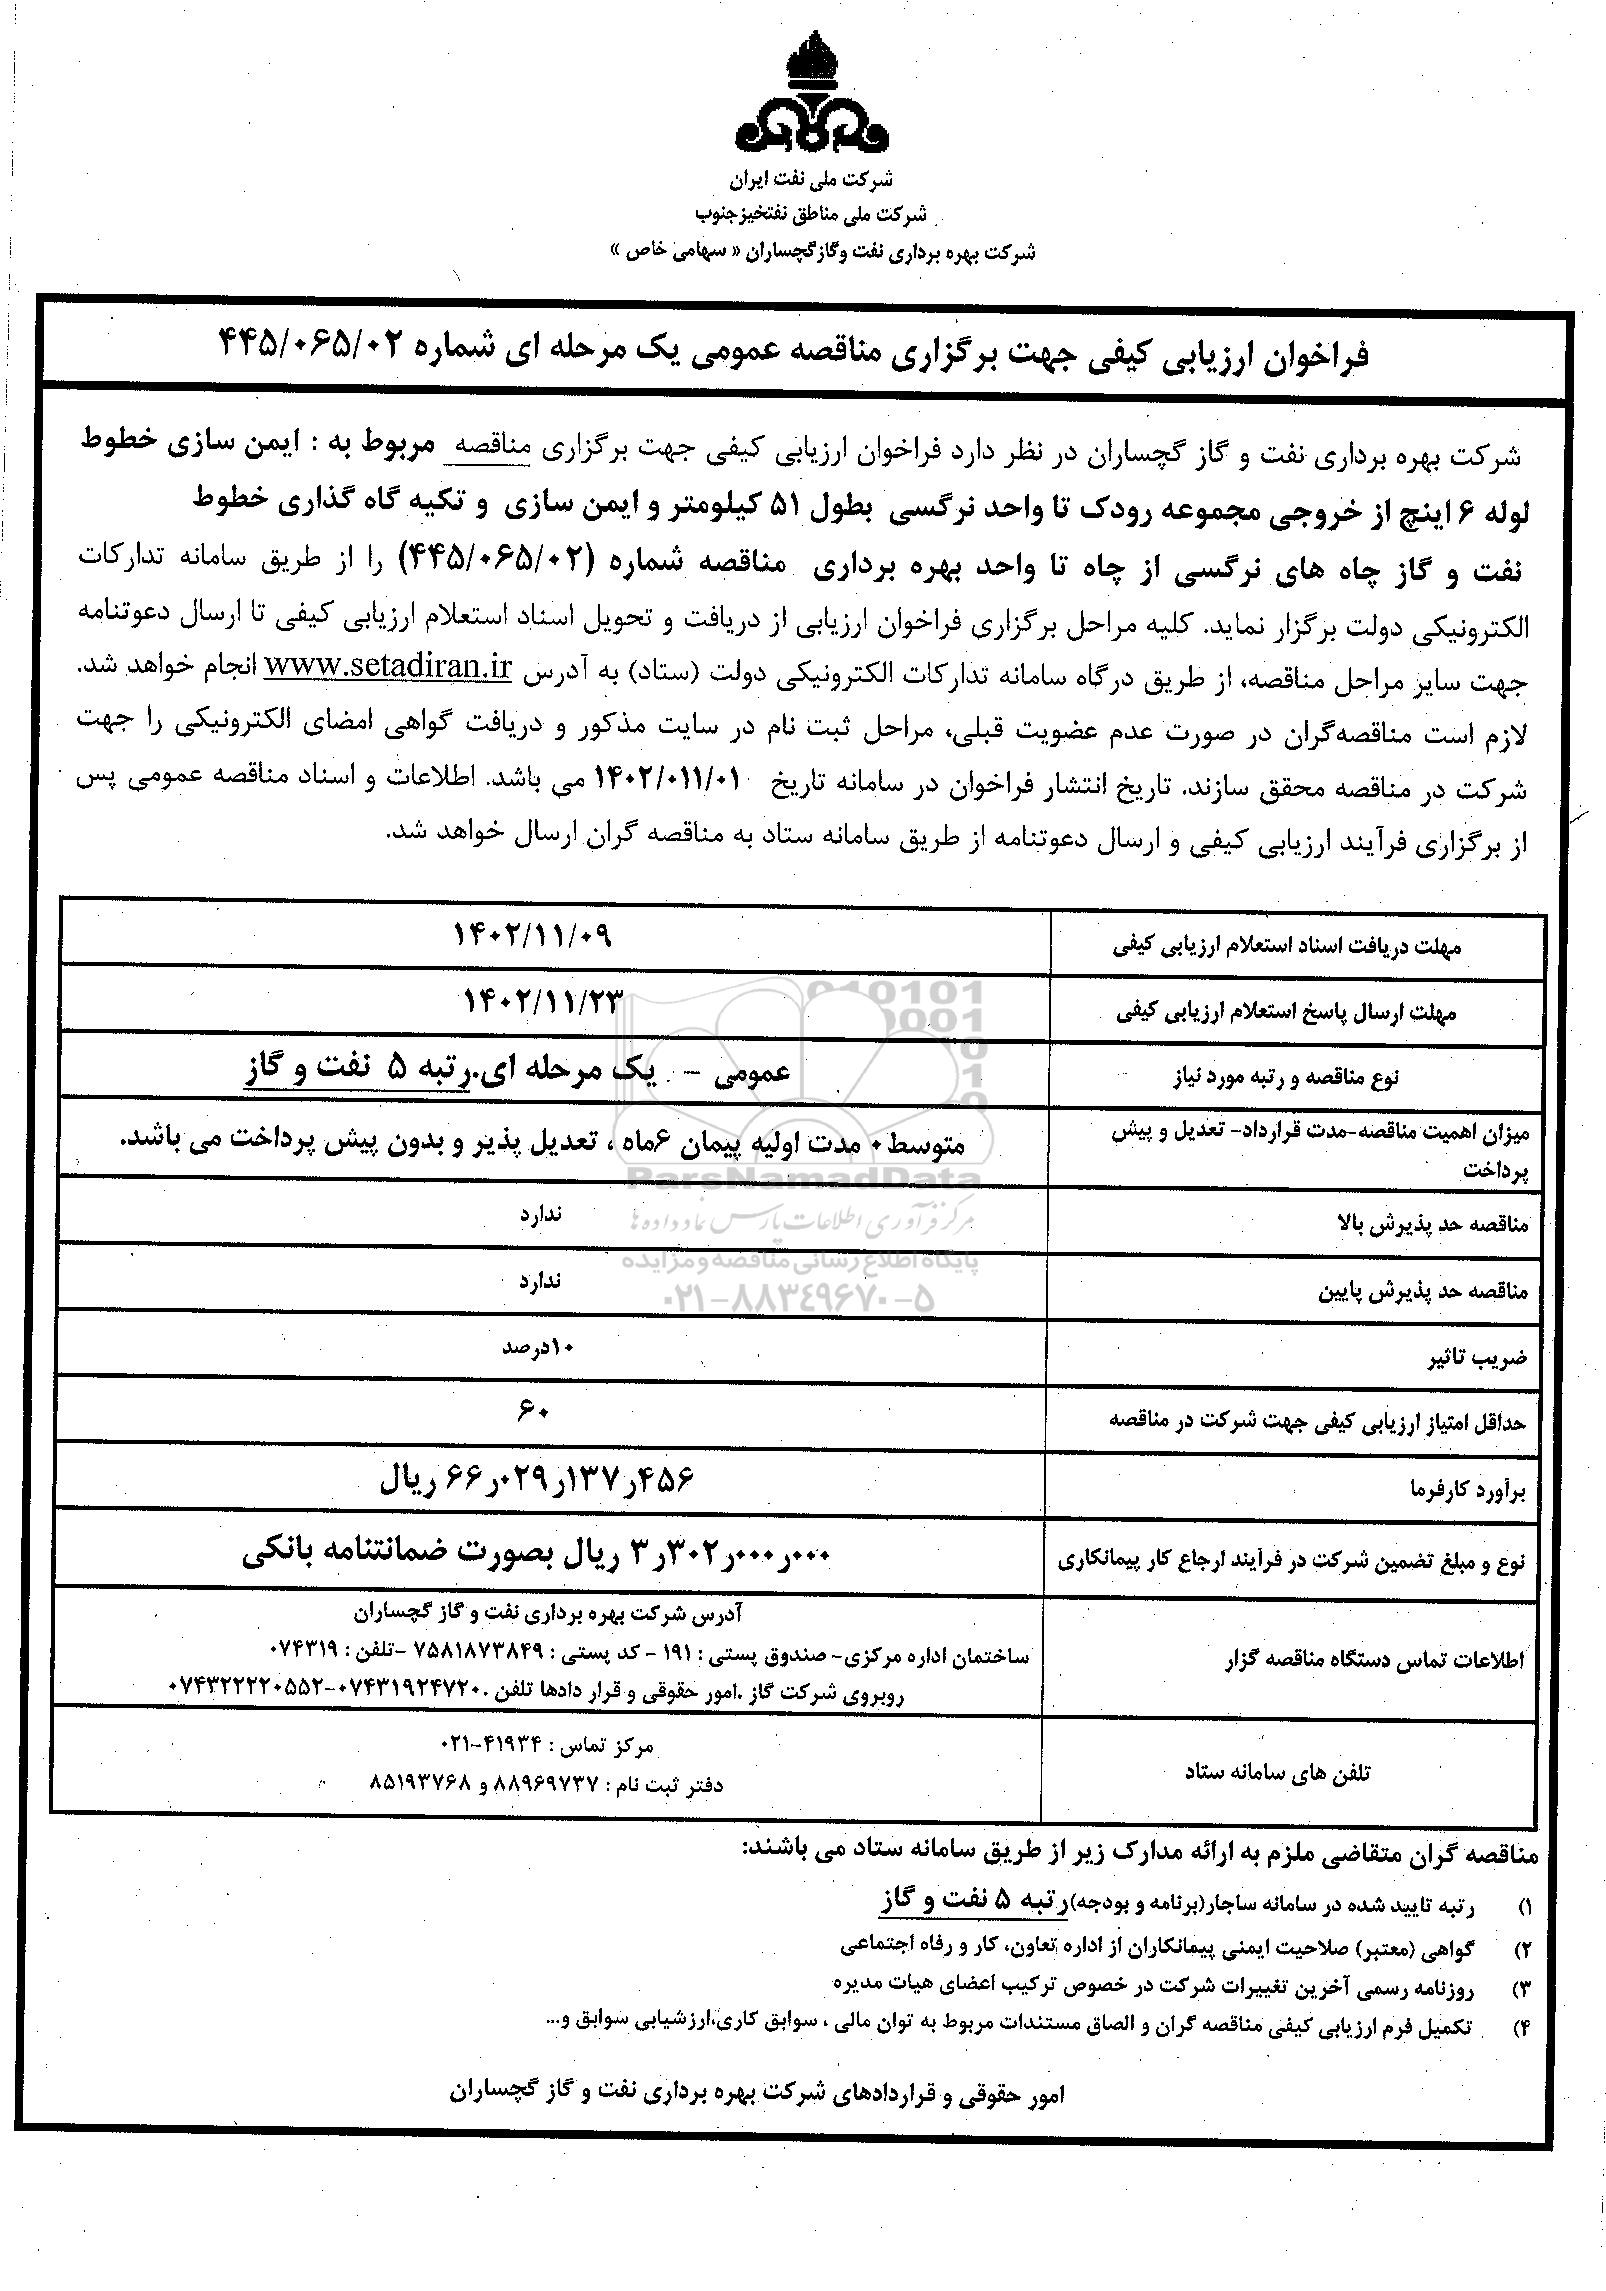 شرکت ملی نفت ایران
شرکت ملی مناطق نفتخیز جنوب
شرکت بهره برداری نفت و گاز گچساران « سهامی خاص »
فراخوان ارزیابی کیفی جهت برگزاری مناقصه عمومی یک مرحله ای شماره ۴۴۵/۰۶۵/۰۲
شرکت بهره برداری نفت و گاز گچساران در نظر دارد فراخوان ارزیابی کیفی جهت برگزاری مناقصه مربوط به : ایمن سازی خطوط
لوله ۶ اینچ از خروجی مجموعه رودک تا واحد نرگسی بطول ۵۱ کیلومتر و ایمن سازی و تکیه گاه گذاری خطوط
نفت و گاز چاه های نرگسی از چاه تا واحد بهره برداری مناقصه شماره (۴۴۵/۰۶۵/۰۲) را از طریق سامانه تدارکات
الکترونیکی دولت برگزار نماید. کلیه مراحل برگزاری فراخوان ارزیابی از دریافت و تحویل اسناد استعلام ارزیابی کیفی تا ارسال دعوتنامه
جهت سایر مراحل مناقصه، از طریق درگاه سامانه تدارکات الکترونیکی دولت (ستاد) به آدرس www.setadiran.ir انجام خواهد شد.
لازم است مناقصه‌گران در صورت عدم عضویت قبلی، مراحل ثبت نام در سایت مذکور و دریافت گواهی امضای الکترونیکی را جهت
شرکت در مناقصه محقق سازند. تاریخ انتشار فراخوان در سامانه تاریخ ۱۴۰۲/۰۱۱/۰۱ می باشد. اطلاعات و اسناد مناقصه عمومی پس
از برگزاری فرآیند ارزیابی کیفی و ارسال دعوتنامه از طریق سامانه ستاد به مناقصه گران ارسال خواهد شد.
مهلت دریافت اسناد استعلام ارزیابی کیفی ۱۴۰۲/۱۱/۰۹
مهلت ارسال پاسخ استعلام ارزیابی کیفی ۱۴۰۲/۱۱/۲۳
نوع مناقصه و رتبه مورد نیاز عمومی – یک مرحله ای.رتبه ۵ نفت و گاز
میزان اهمیت مناقصه-مدت قرارداد- تعدیل و پیش
پرداخت
متوسط۰ مدت اولیه پیمان ۶ماه ، تعدیل پذیر و بدون پیش پرداخت می باشد.
مناقصه حد پذیرش بالا ندارد
مناقصه حد پذیرش پایین ندارد
ضریب تاثیر ۱۰درصد
حداقل امتیاز ارزیابی کیفی جهت شرکت در مناقصه ۶۰
برآورد کارفرما ۶۶ر۰۲۹ر۱۳۷ر۴۵۶ ریال
نوع و مبلغ تضمین شرکت در فرآیند ارجاع کار پیمانکاری ۳ر۳۰۲ر۰۰۰ر۰۰۰ ریال بصورت ضمانتنامه بانکی
اطلاعات تماس دستگاه مناقصه گزار
آدرس شرکت بهره برداری نفت و گاز گچساران
ساختمان اداره مرکزی- صندوق پستی : ۱۹۱ - کد پستی : ۷۵۸۱۸۷۳۸۴۹ -تلفن : ۰۷۴۳۱۹
روبروی شرکت گاز .امور حقوقی و قرار دادها تلفن .۰۷۴۳۱۹۲۴۷۲۰-۰۷۴۳۲۲۲۲۰۵۵۲
تلفن های سامانه ستاد
مرکز تماس : ۰۲۱-۴۱۹۳۴
دفتر ثبت نام : ۸۸۹۶۹۷۳۷ و ۸۵۱۹۳۷۶۸
مناقصه گران متقاضی ملزم به ارائه مدارک زیر از طریق سامانه ستاد می باشند:
۱) رتبه تایید شده در سامانه ساجار(برنامه و بودجه)رتبه ۵ نفت و گاز
۲) گواهی (معتبر) صلاحیت ایمنی پیمانکاران از اداره تعاون، کار و رفاه اجتماعی
۳) روزنامه رسمی آخرین تغییرات شرکت در خصوص ترکیب اعضای هیات مدیره
۴) تکمیل فرم ارزیابی کیفی مناقصه گران و الصاق مستندات مربوط به توان مالی ، سوابق کاری،ارزشیابی سوابق و...
امور حقوقی و قراردادهای شرکت بهره برداری نفت و گاز گچساران
ParsNamadData
مرکز فرآوری اطلاعات پارس نماد داده ها
پایگاه اطلاع رسانی مناقصه و مزایده
۰۲۱-۸۸۳۴۹۶۷۰-۵